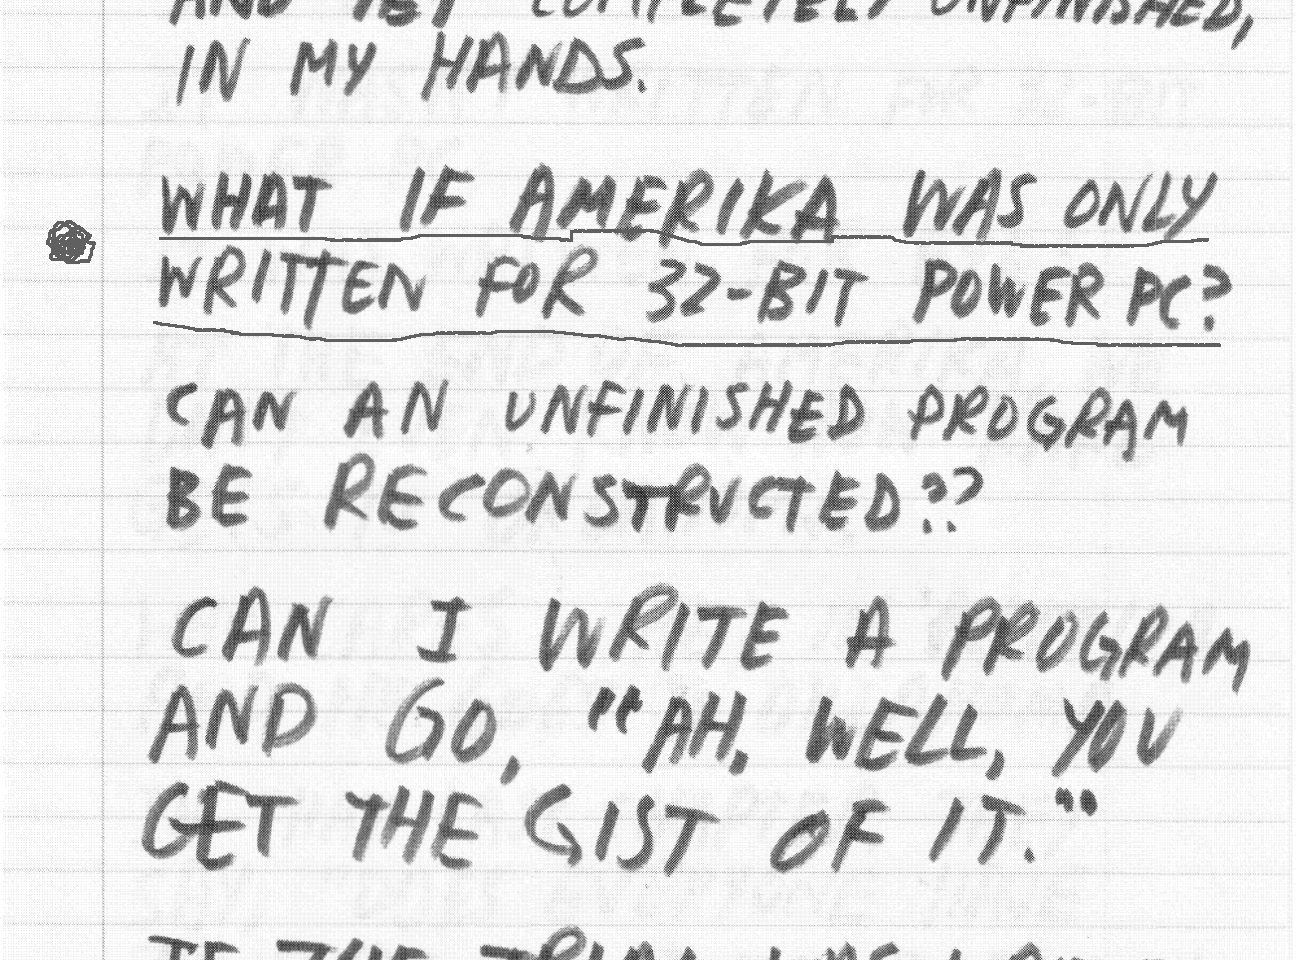 AND YET COMPLETELY UNFINISHED,
IN MY HANDS.
WHAT IF AMERIKA WAS ONLY
WRITTEN FOR 32-BIT POWER PC?
CAN AN UNFINISHED PROGRAM
BE RECONSTRUCTED??
CAN I WRITE A PROGRAM
AND GO, "AH, WELL, YOU
GET THE GIST OF IT."
IF THE TRIAL WAS